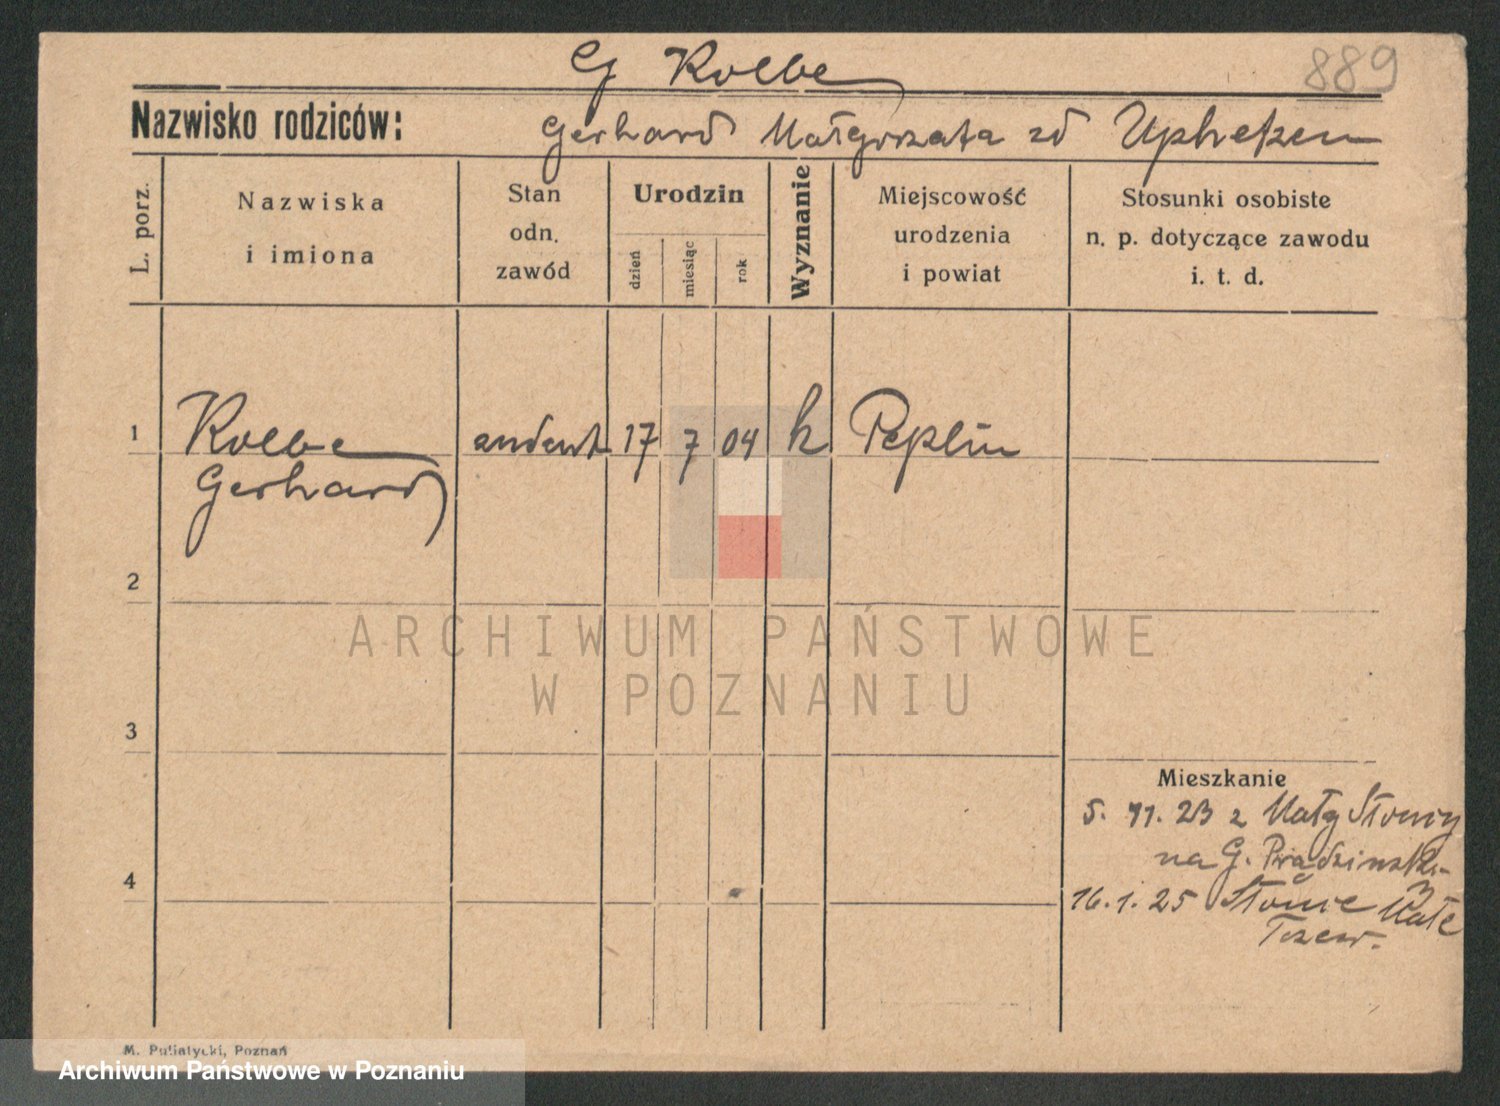 G Kolbe
889
Nazwisko rodziców:
Gerhard Małgorzata zd Upheken
L. porz.
Nazwiska
i imiona
Stan
odn.
zawód
Urodzin
dzień
miesiąc
rok
Wyznanie
Miejscowość
urodzenia
i powiat
Stosunki osobiste
n. p. dotyczące zawodu
i. t. d.
1
Kolbe
Gerhard
17
7
04
k
Peplin
2
3
4
ARCHIWUM PAŃSTWOWE
W POZNANIU
Mieszkanie
5. 11. 23 z Małej Słońcy
na G. Prądzinski.
16. 1. 25 Słońce Małe
Tczew.
M. Putiatycki, Poznań
Archiwum Państwowe w Poznaniu